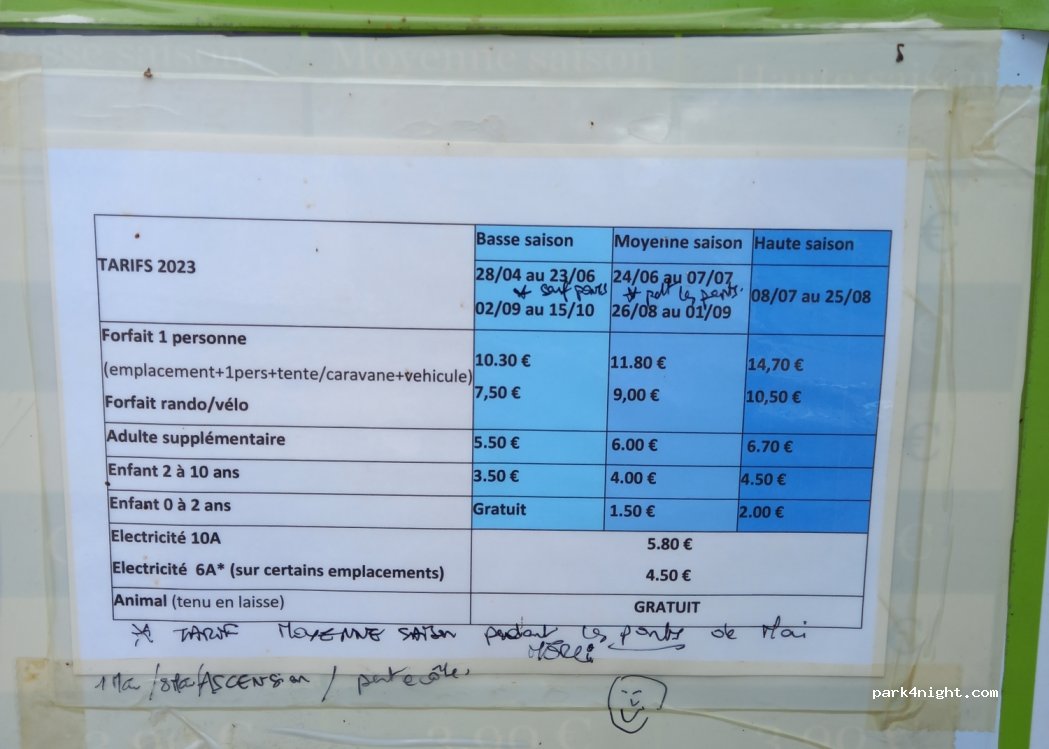 Moyenne saison
Haute saison
TARIFS 2023
Basse saison
Moyenne saison
Haute saison
28/04 au 23/06
* sauf ponts
02/09 au 15/10
24/06 au 07/07
* pdt les ponts.
26/08 au 01/09
08/07 au 25/08
Forfait 1 personne
(emplacement+1pers+tente/caravane+vehicule)
10.30 €
11.80 €
14,70 €
Forfait rando/vélo
7,50 €
9,00 €
10,50 €
Adulte supplémentaire
5.50 €
6.00 €
6.70 €
Enfant 2 à 10 ans
3.50 €
4.00 €
4.50 €
Enfant 0 à 2 ans
Gratuit
1.50 €
2.00 €
Electricité 10A
5.80 €
Electricité 6A* (sur certains emplacements)
4.50 €
Animal (tenu en laisse)
GRATUIT
* TARIF MOYENNE SAISON pendant les ponts de Mai
MERCI
1 Mai / 8 Mai / ASCENSION / pentecôte.
park4night.com